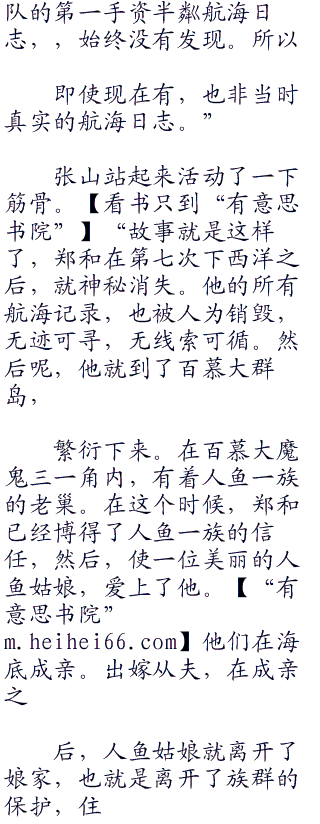 队的第一手资半粼航海日
志，，始终没有发现。所以
即使现在有，也非当时
真实的航海日志。”
张山站起来活动了一下
筋骨。【看书只到“有意思
书院”】“故事就是这样
了，郑和在第七次下西洋之
后，就神秘消失。他的所有
航海记录，也被人为销毁，
无迹可寻，无线索可循。然
后呢，他就到了百慕大群
岛，
繁衍下来。在百慕大魔
鬼三一角内，有着人鱼一族
的老巢。在这个时候，郑和
已经博得了人鱼一族的信
任，然后，使一位美丽的人
鱼姑娘，爱上了他。【“有
意思书院”
m.heihei66.com】他们在海
底成亲。出嫁从夫，在成亲
之
后，人鱼姑娘就离开了
娘家，也就是离开了族群的
保护，住